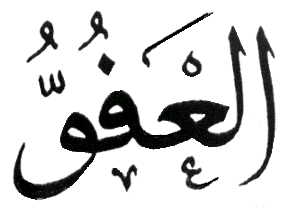 الْعَفُوُّ